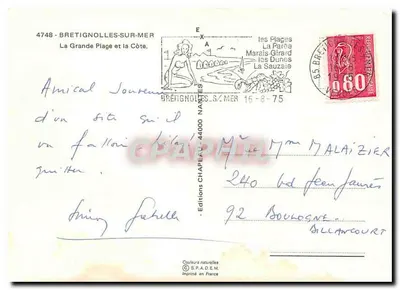 4748 - BRETIGNOLLES-SUR-MER
La Grande Plage et la Côte.
les Plages
La Parée
Marais-Girard
les Dunes
La Sauzaie
BRETIGNOLLES S/MER 16-8-75
0.60
Amical Souvenir
d'un site qu'il
va falloir
quitter.
Editions CHAPEAU 44000 NANTES
Mr et Mme MALAIZIER
240 bd Jean Jaurès
92 BOULOGNE
BILLANCOURT
Couleurs naturelles
© S.P.A.D.E.M.
Imprimé en France
CPAPHIL